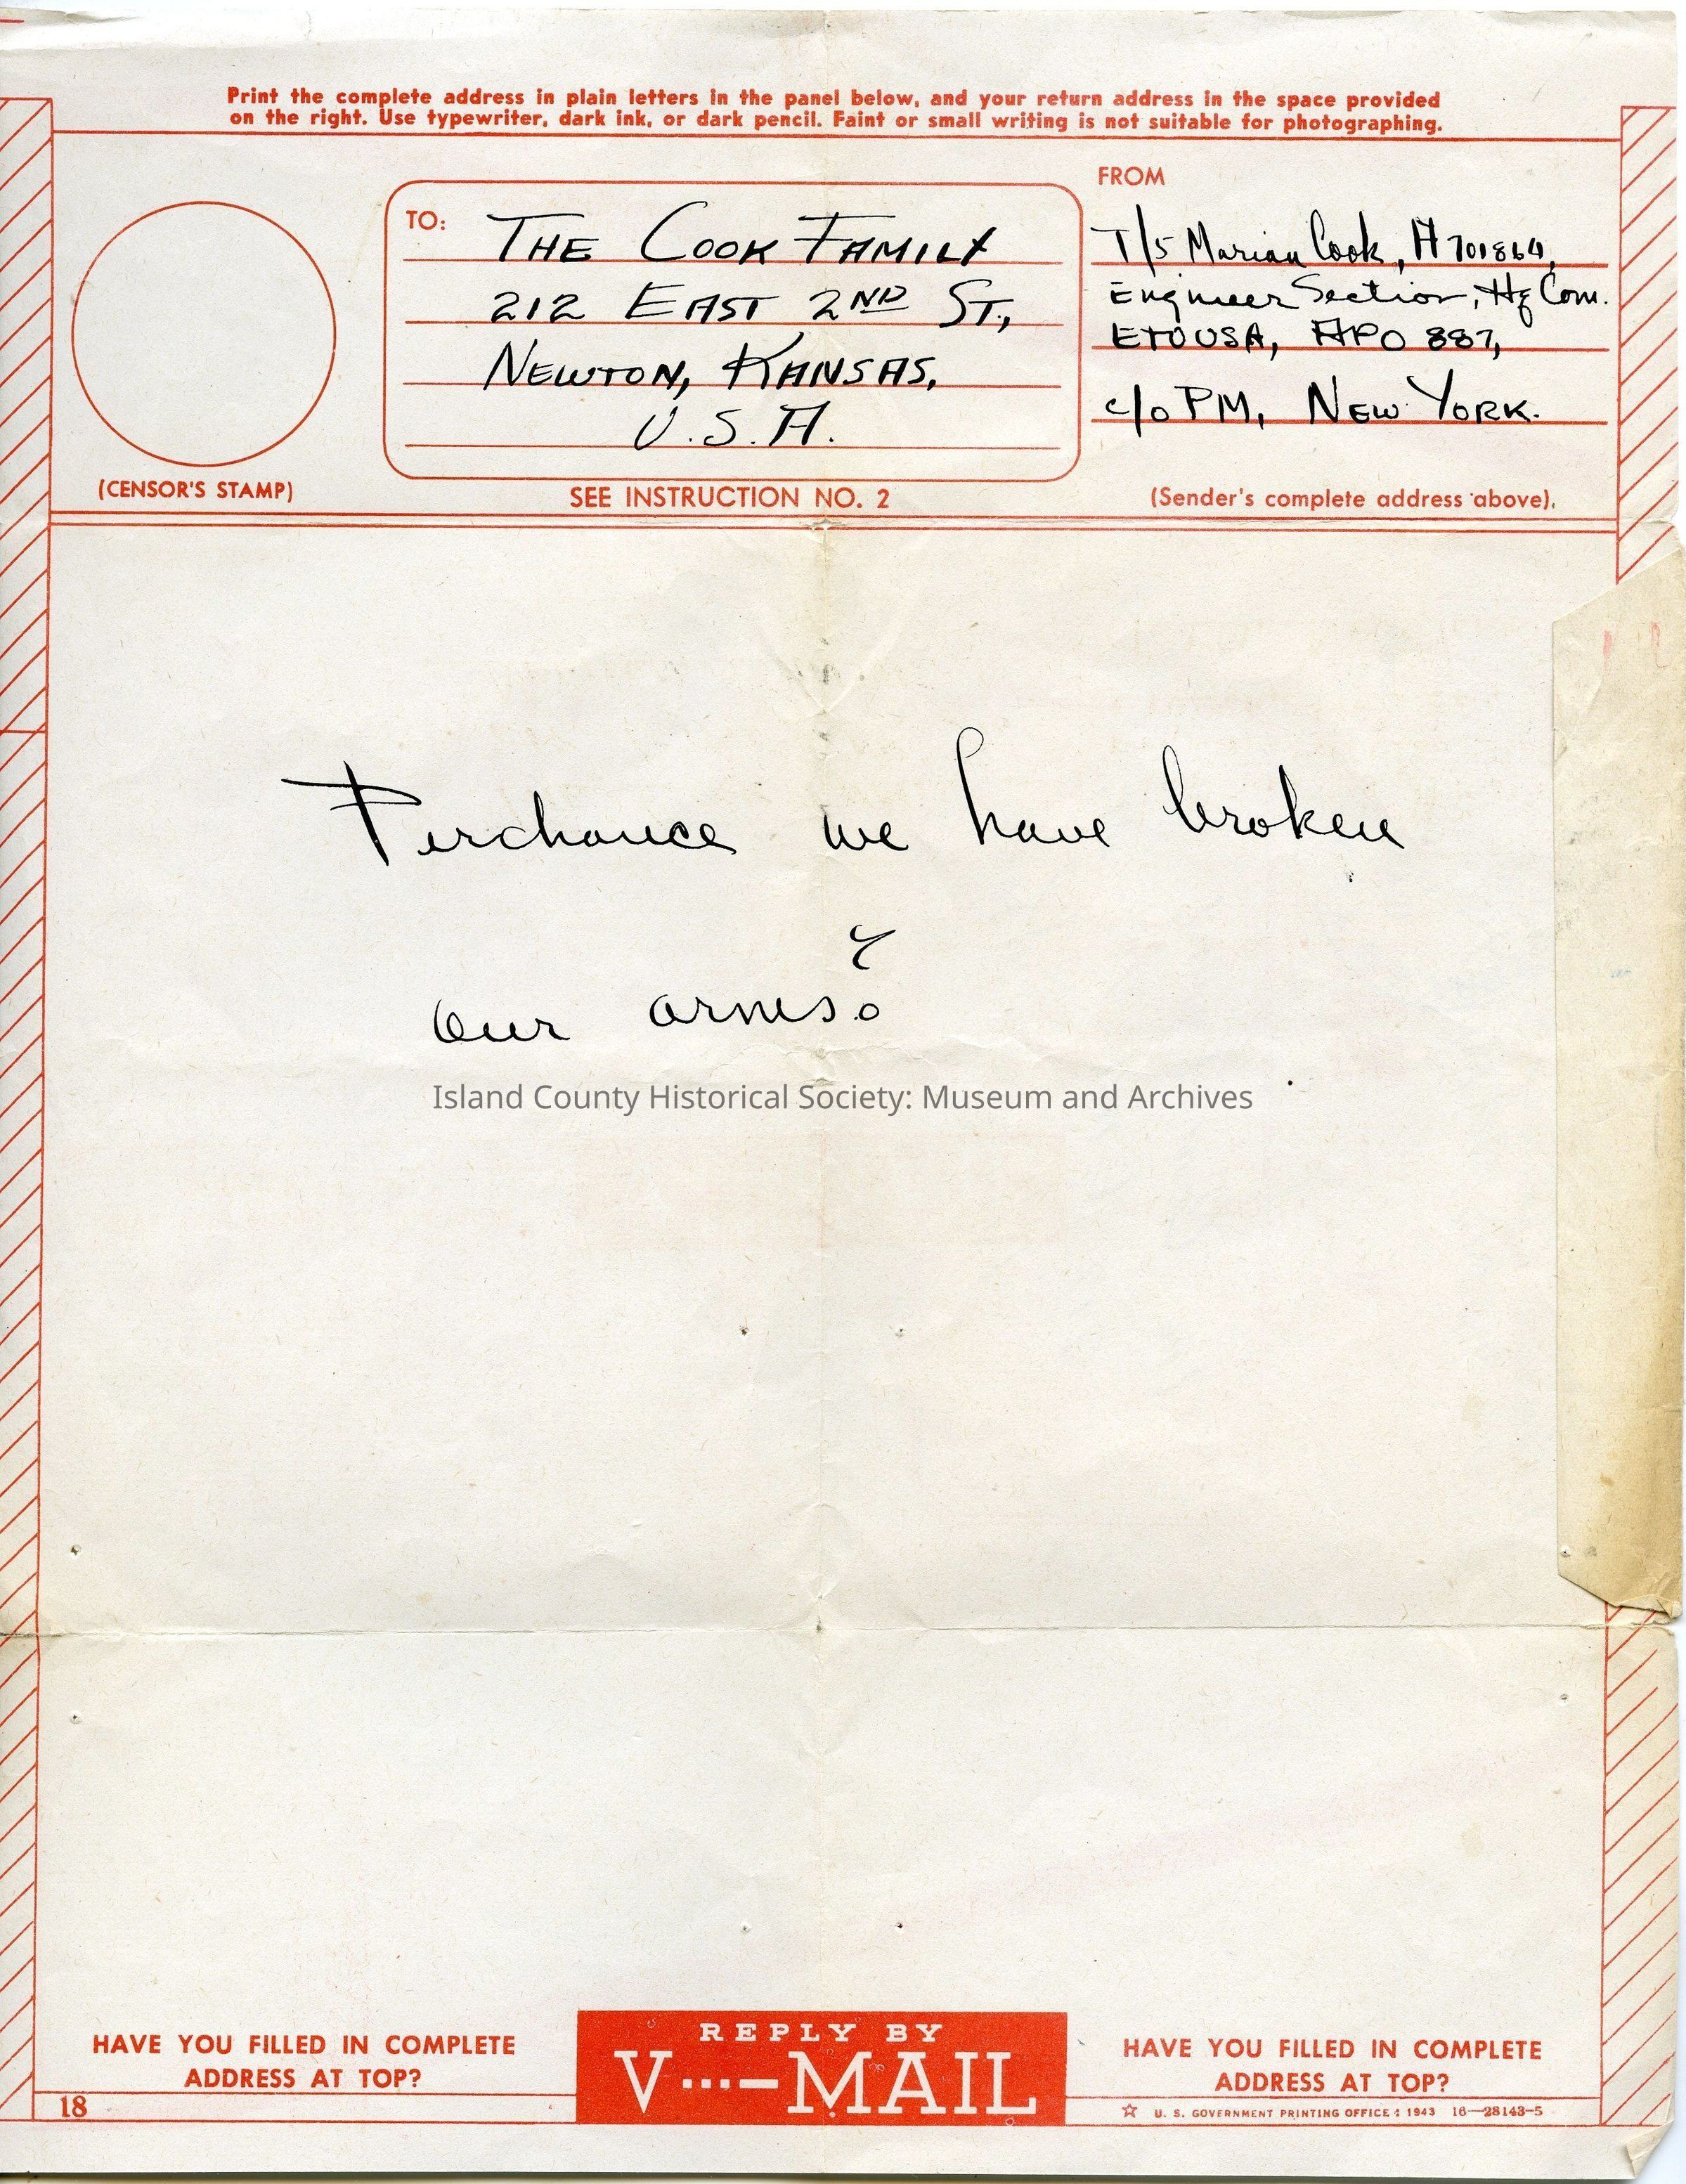 Print the complete address in plain letters in the panel below, and your return address in the space provided
on the right. Use typewriter, dark ink, or dark pencil. Faint or small writing is not suitable for photographing.
FROM
TO:
THE COOK FAMILY
212 EAST 2ND ST.,
NEWTON, KANSAS,
U.S.A.
T/5 Marian Cook, A701864,
Engineer Section, Hq Com.
ETOUSA, APO 887,
c/o PM, NEW YORK.
(CENSOR'S STAMP)
SEE INSTRUCTION NO. 2
(Sender's complete address above).
Perchance we have broken
our arms?
Island County Historical Society: Museum and Archives
HAVE YOU FILLED IN COMPLETE
ADDRESS AT TOP?
REPLY BY
V···—MAIL
HAVE YOU FILLED IN COMPLETE
ADDRESS AT TOP?
18
☆ U. S. GOVERNMENT PRINTING OFFICE : 1943 16—28143-5